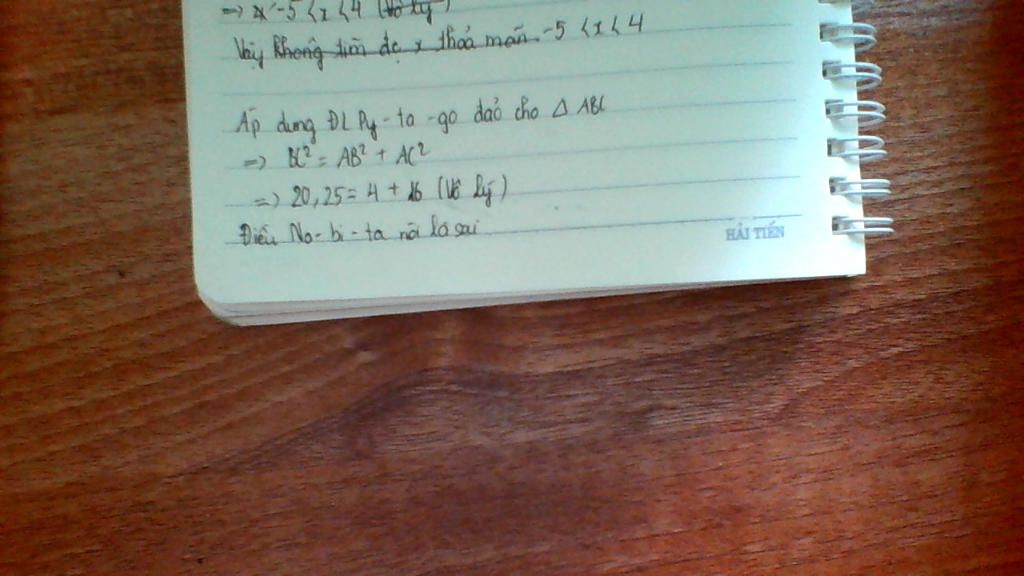 => x -5 < x < 4 (Vô lý)
Vậy không tìm đc x thoả mãn -5 < x < 4
Áp dụng ĐL Py-ta-go đảo cho Δ ABC
=> BC² = AB² + AC²
=> 20,25 = 4 + 16 (Vô lý)
Điều No-bi-ta nói là sai
HẢI TIẾN